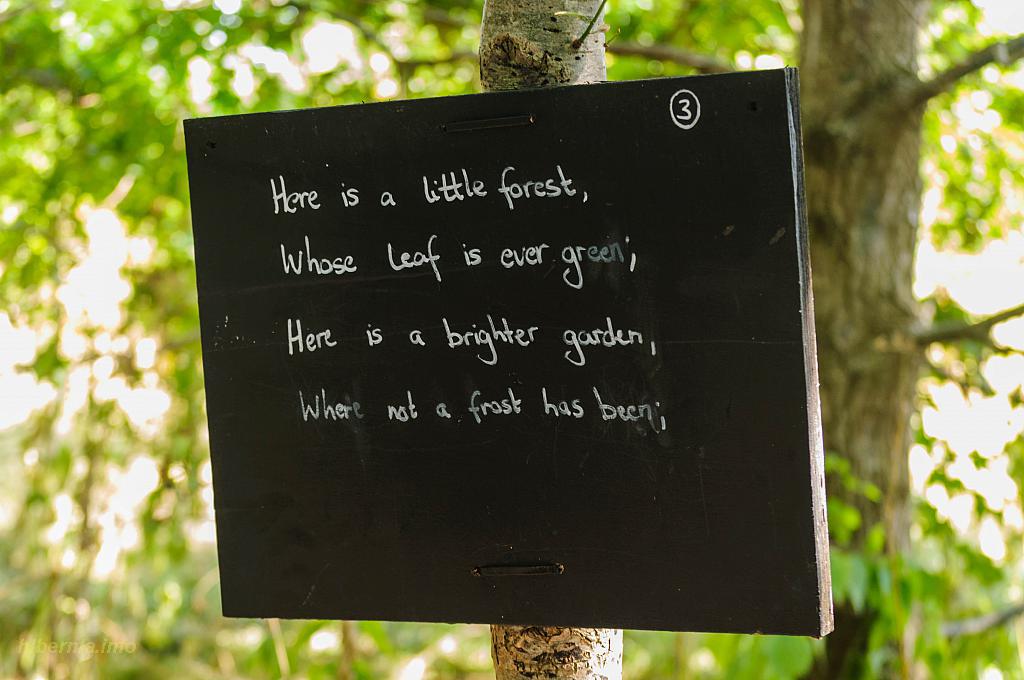 3
Here is a little forest,
Whose leaf is ever green;
Here is a brighter garden,
Where not a frost has been;